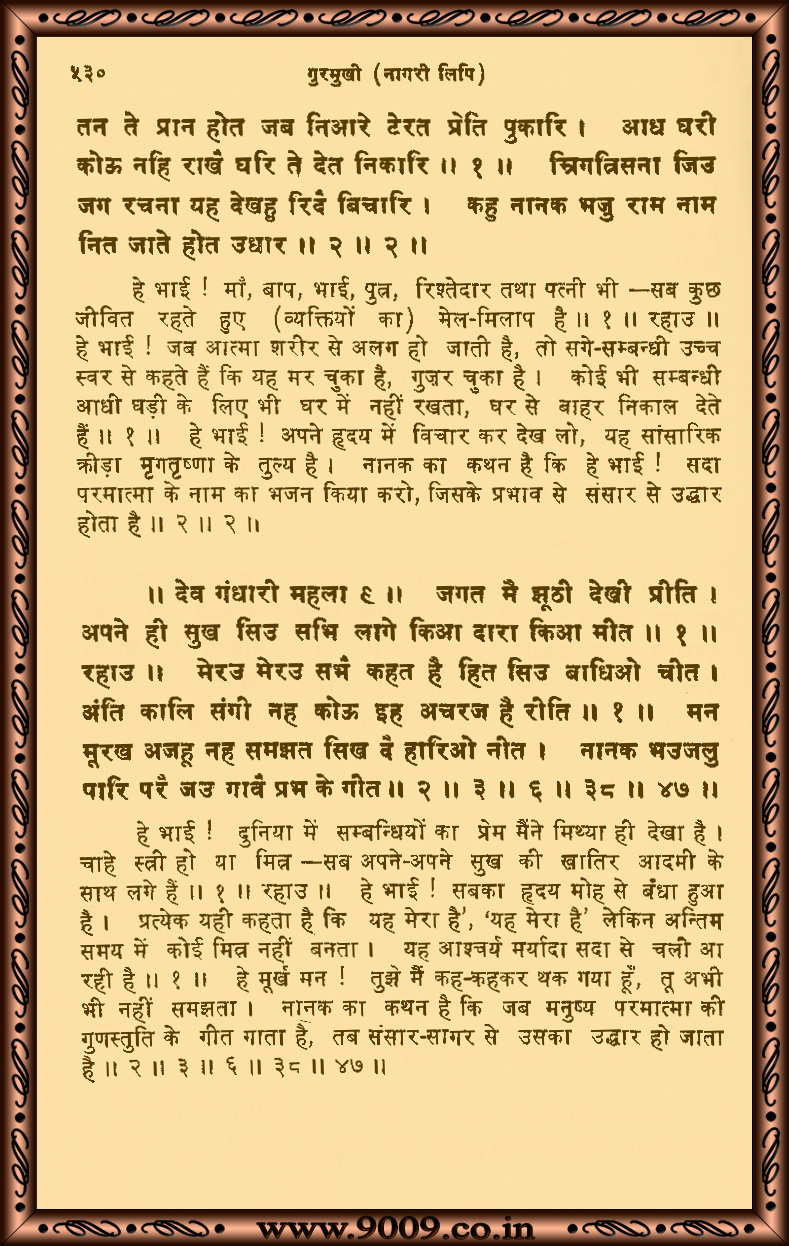 ५३०
गुरमुखी (नागरी लिपि)
तन ते प्रान होत जब निआरे टेरत प्रेति पुकारि । आध घरी
कोऊ नहि राखै घरि ते देत निकारि ॥ १ ॥ म्रिगत्रिसना जिउ
जग रचना यह देखहु रिदै बिचारि । कहु नानक भजु राम नाम
नित जाते होत उधार ॥ २ ॥ २ ॥
हे भाई ! माँ, बाप, भाई, पुत्र, रिश्तेदार तथा पत्नी भी —सब कुछ
जीवित रहते हुए (व्यक्तियों का) मेल-मिलाप है ॥ १ ॥ रहाउ ॥
हे भाई ! जब आत्मा शरीर से अलग हो जाती है, तो सगे-सम्बन्धी उच्च
स्वर से कहते हैं कि यह मर चुका है, गुज़र चुका है । कोई भी सम्बन्धी
आधी घड़ी के लिए भी घर में नहीं रखता, घर से बाहर निकाल देते
हैं ॥ १ ॥ हे भाई ! अपने हृदय में विचार कर देख लो, यह सांसारिक
क्रीड़ा मृगतृष्णा के तुल्य है । नानक का कथन है कि हे भाई ! सदा
परमात्मा के नाम का भजन किया करो, जिसके प्रभाव से संसार से उद्धार
होता है ॥ २ ॥ २ ॥
॥ देव गंधारी महला ९ ॥ जगत मै झूठी देखी प्रीति ।
अपने ही सुख सिउ सभि लागे किआ दारा किआ मीत ॥ १ ॥
रहाउ ॥ मेरउ मेरउ सभै कहत है हित सिउ बाधिओ चीत ।
अंति कालि संगी नह कोऊ इह अचरज है रीति ॥ १ ॥ मन
मूरख अजहू नह समझत सिख दै हारिओ नीत । नानक भउजलु
पारि परै जउ गावै प्रभ के गीत ॥ २ ॥ ३ ॥ ६ ॥ ३८ ॥ ४७ ॥
हे भाई ! दुनिया में सम्बन्धियों का प्रेम मैंने मिथ्या ही देखा है ।
चाहे स्त्री हो या मित्र —सब अपने-अपने सुख की ख़ातिर आदमी के
साथ लगे हैं ॥ १ ॥ रहाउ ॥ हे भाई ! सबका हृदय मोह से बँधा हुआ
है । प्रत्येक यही कहता है कि यह मेरा है', 'यह मेरा है' लेकिन अन्तिम
समय में कोई मित्र नहीं बनता । यह आश्चर्य मर्यादा सदा से चली आ
रही है ॥ १ ॥ हे मूर्ख मन ! तुझे मैं कह-कहकर थक गया हूँ, तू अभी
भी नहीं समझता । नानक का कथन है कि जब मनुष्य परमात्मा की
गुणस्तुति के गीत गाता है, तब संसार-सागर से उसका उद्धार हो जाता
है ॥ २ ॥ ३ ॥ ६ ॥ ३८ ॥ ४७ ॥
www.9009.co.in